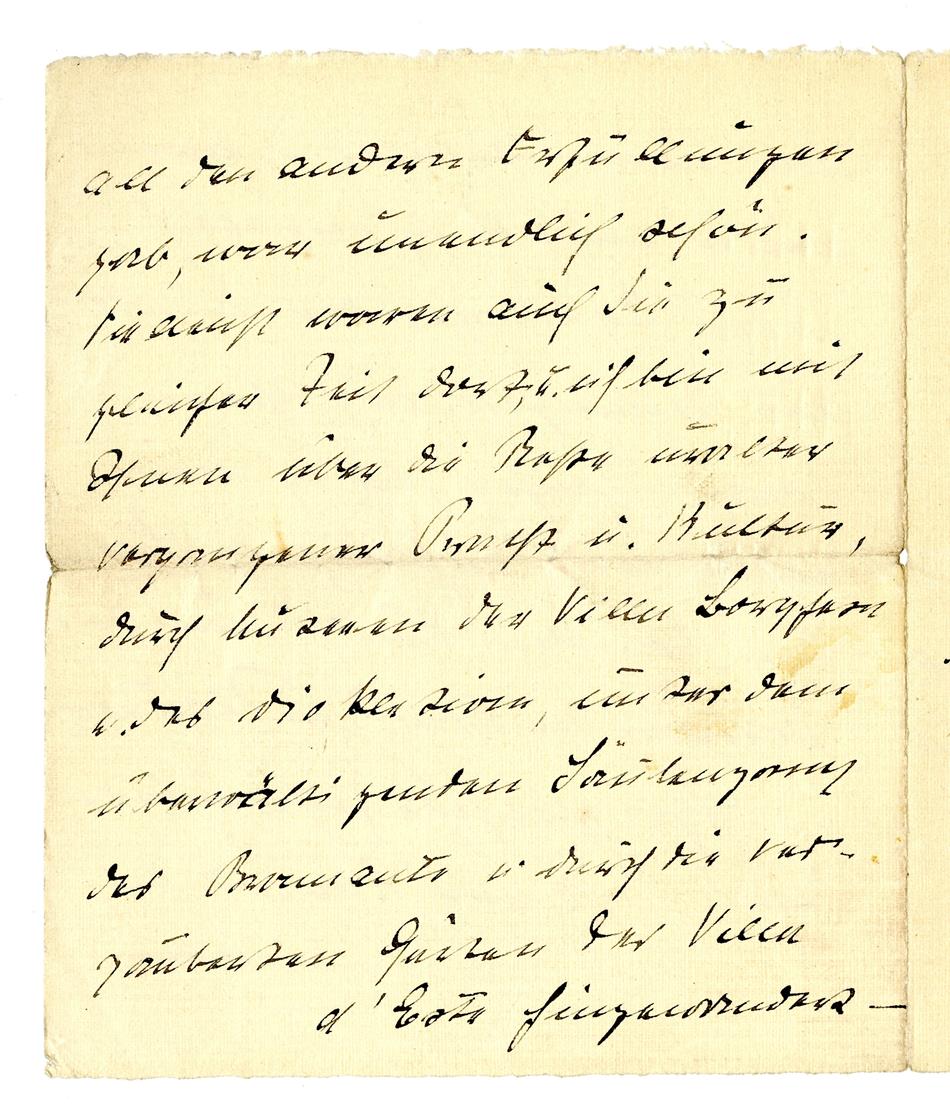 all den andern Erfüllungen
gab, war unendlich schön.
Vielleicht waren auch Sie zu
gleicher Zeit dort, u. ich bin mit
Ihnen über die Reste uralter
vergangener Pracht u. Kultur,
durch Museen der Villa Borghese
u. des Diokletian, unter dem
überwältigenden Säulengang
des Bramante u. durch die ver-
zauberten Gärten der Villa
d'Este hingewandert —